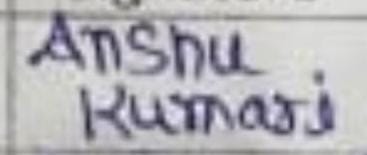 Anshu
Kumari